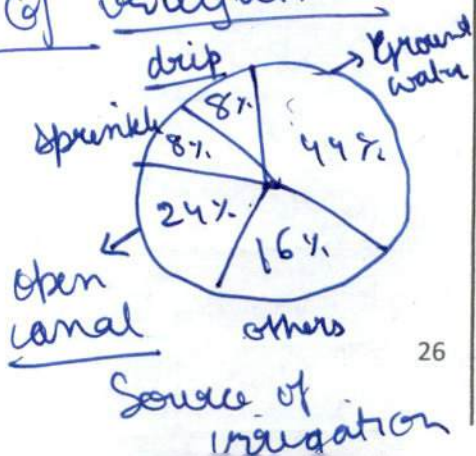 of
drip
Ground
water
sprinkle
8%
8%
44%
24%
16%
open
canal
others
26
Source of
irrigation